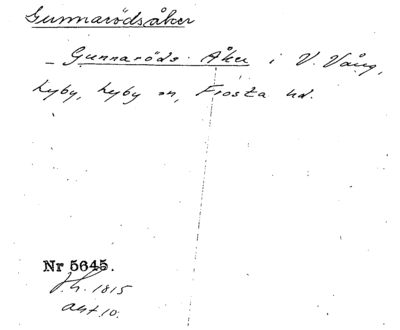 Gunnarödsåker
– Gunnaröds Åker i V. Vång,
Lyby, Lyby sn, Frosta hd.
Nr 5645.
J.h. 1815
akt 10.